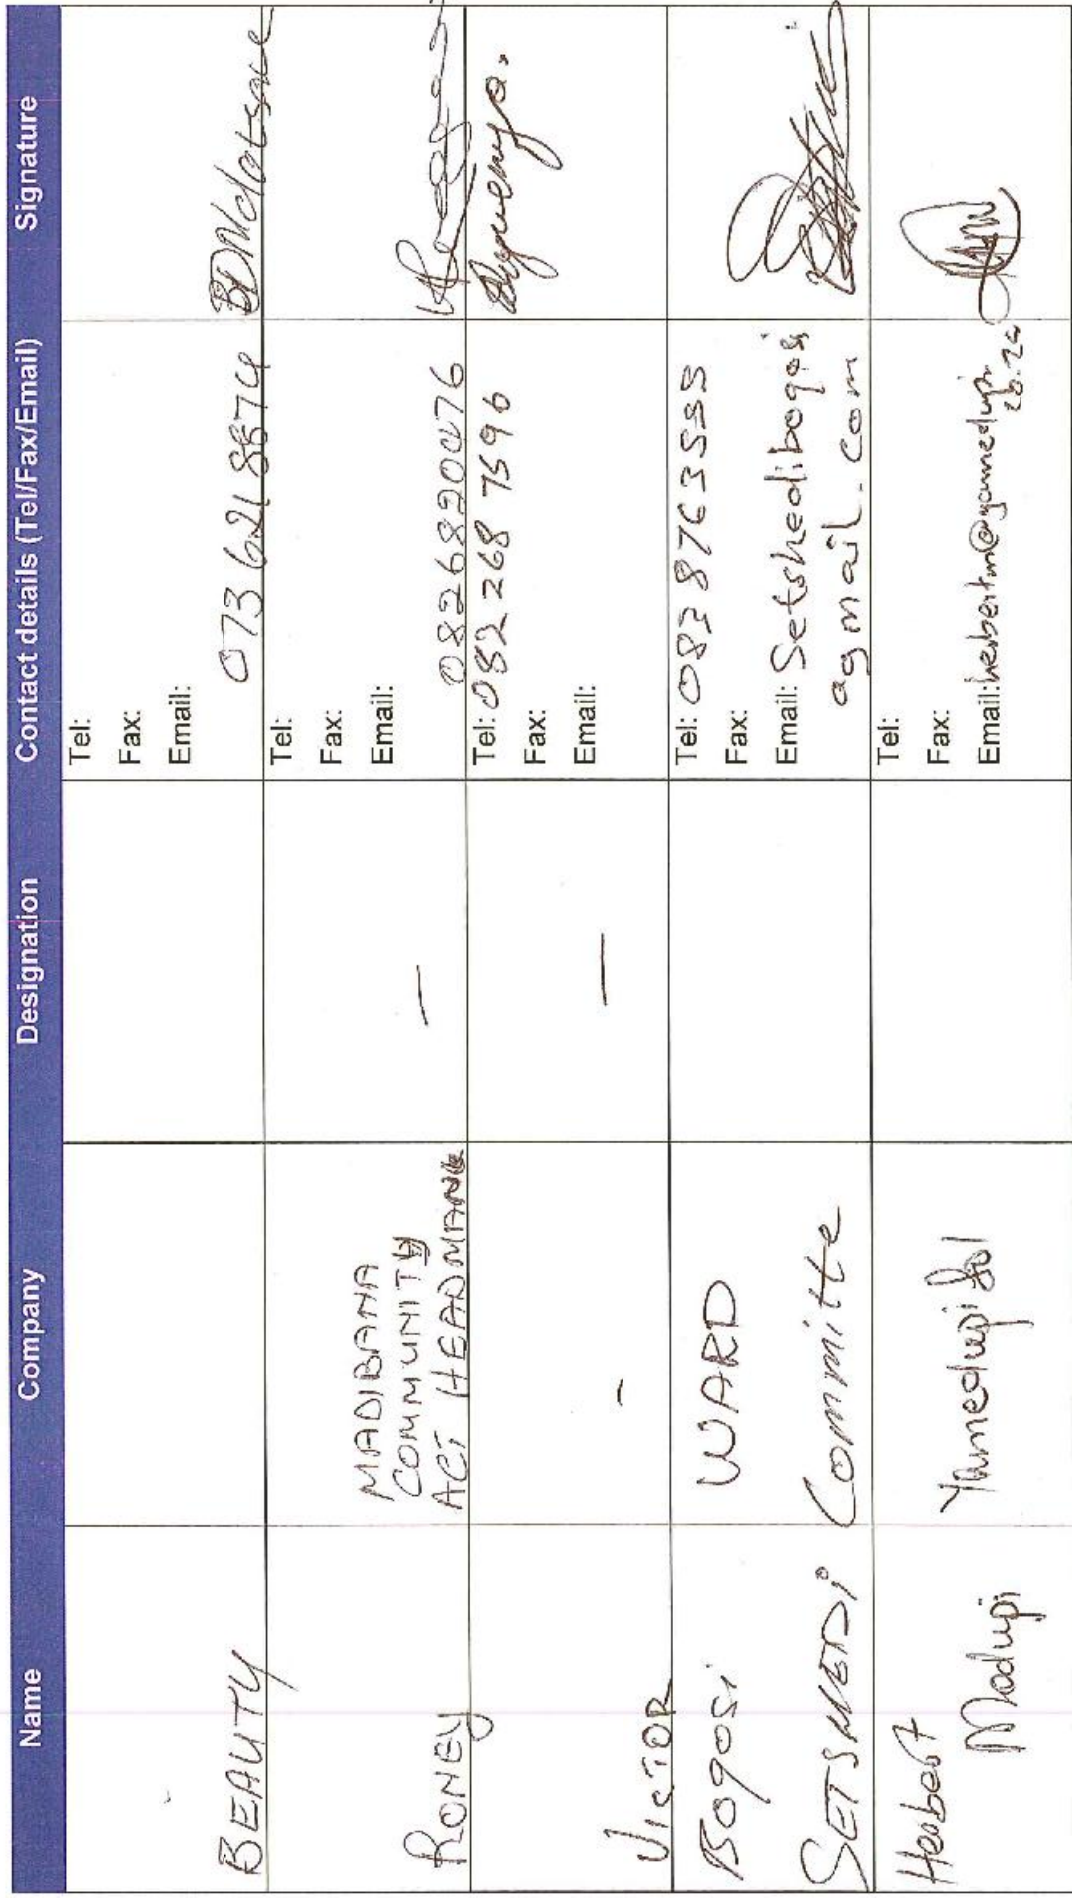 Name Company Designation Contact details (Tel/Fax/Email) Signature
BEAUTY
Tel:
Fax:
Email:
073 621 8874
BDNdlotsne
RONEY
MADIBANA
COMMUNITY
ACT HEADMAN
—
Tel:
Fax:
Email:
0826820476
VICTOR
-
—
Tel: 082 268 7596
Fax:
Email:
Bogosi
SETSHEDi
WARD
Committe
Tel: 083 8763555
Fax:
Email: Setshedibogosi
agmail.com
Herbert
Madupi
Yamedupi
Tel:
Fax:
Email: herbertm@yamedupi